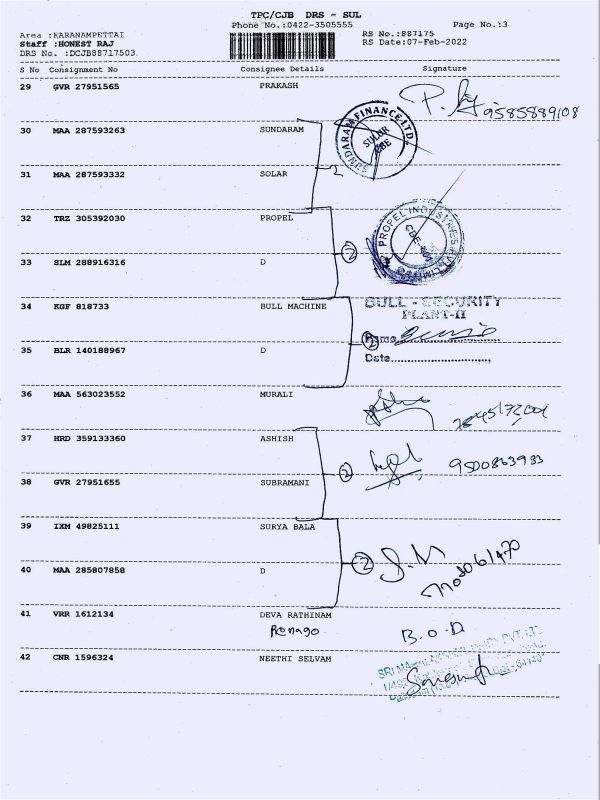 TPC/CJB DRS - SUL
Phone No.:0422-3505555 Page No.:3
Area :KARANAMPETTAI RS No.:887175
Staff :HONEST RAJ RS Date:07-Feb-2022
DRS No. :DCJB88717503
S No Consignment No Consignee Details Signature
29 GVR 27951565 PRAKASH
9585889108
30 MAA 287593263 SUNDARAM
SUNDARAM FINANCE LTD.
SULUR
CBE
2
31 MAA 287593332 SOLAR
32 TRZ 305392030 PROPEL
PROPEL INDUSTRIES
2
33 SLM 288916316 D
34 KGF 818733 BULL MACHINE
BULL - SECURITY
PLANT-II
Name
2
35 BLR 140188967 D
Date
36 MAA 563023552 MURALI
37 HRD 359133360 ASHISH
2
9500863933
38 GVR 27951655 SUBRAMANI
39 IXM 49825111 SURYA BALA
2 S.M
40 MAA 285807858 D
41 VRR 1612134 DEVA RATHINAM
B.O.D
42 CNR 1596324 NEETHI SELVAM